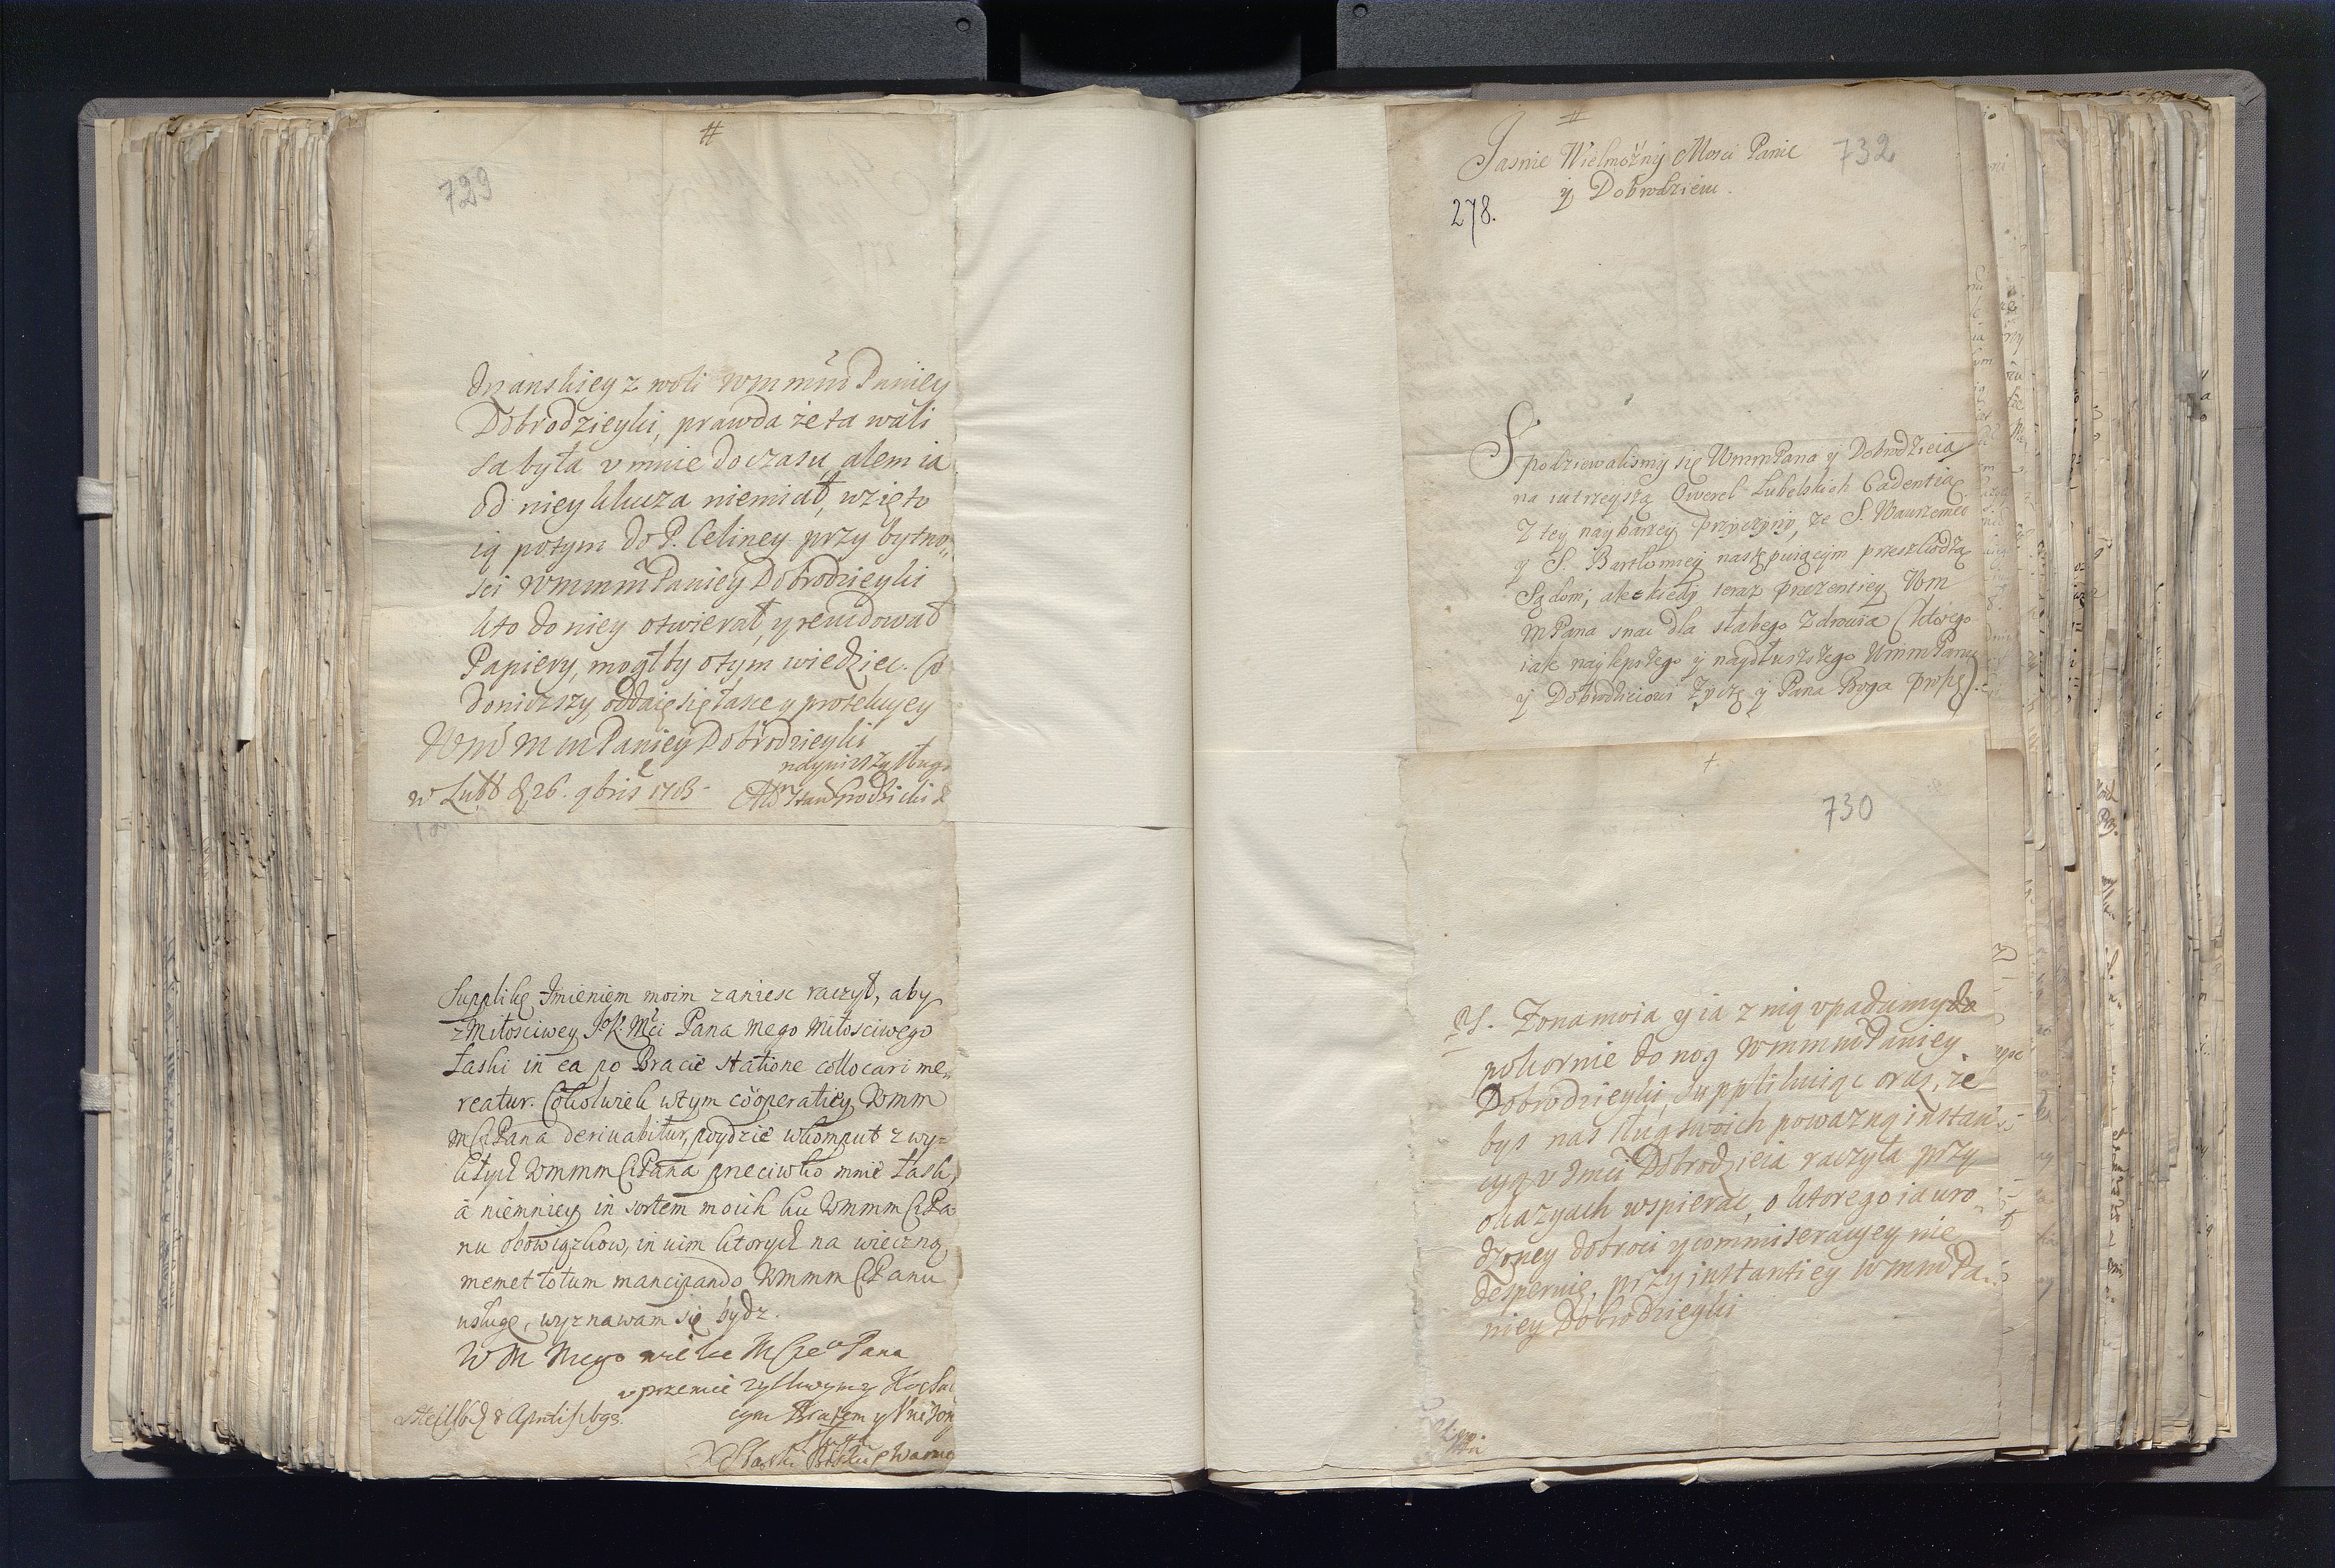 #
729
Dobrodzieyki, prawda że ta wali
sa była v mnie do czasu, alem ia
od niey klucza niemiał, wzięto
ią potym do P. Celiney przy bytno„
sci Wmmm Paniey Dobrodzieyki
kto do niey otwierał, y rewidował
Papiery, mogłby otym wiedziec. Co
doniozszy oddaię się łasce y protekcyey
Wm m m Paniey Dobrodzieyki
naynizszy sługa
w Lubl d 26. 9bris 1703
Supplikę Imieniem moim zaniesc raczył, aby
z Miłosciwey J.K.Mci Pana mego Miłosciwego
łaski in ea po Bracie statione collocari me„
reatur. Cokolwiek wtym cooperatiey Wmm
M Pana deriuabitur, poydzie wkomput zwy=
kłych Wmmm Pana przeciwko mnie łask,
a niemniey in sortem moich ku Wmmm Pa
nu obowiązkow, in vim ktorych na wieczną
memet totum mancipando Wmmm Panu
usługę, wyznawam się bydz.
W M Mego wielce M Pana
vprzemie zyczliwym y
cym Bratem y
sługą
#
Jasnie Wielmożny Mosci Panie
y Dobrodzieiu.
732
278.
Spodziewalismy się WmmPana y Dobrodzieia
na iutrzeyszą Qwerel Lubelskich Cadentią
Z tey naybarzey przyczyny, ze S. Wawrzeniec
y S. Bartłomiey następuiącym przeszkodzą
Sądom; ale kiedy teraz prezentiey Wm
MPana snac dla słabego Zdrowia (ktorego
iak naylepszego y naydłuzszego WmmPanu
y Dobrodzieiowi zyczę y Pana Boga proszę)
+
730
PS. Zona moia y ia z nią vpadamy do
pokornie do nog Wmmm Paniey
Dobrodzieyki, supplikuiąc oraz, ze
bys nas sług swoich powazną instan
cyą v Jmci Dobrodzieia raczyła przy
okazyach wspierac, o ktorego ia uro„
dzoney dobroci y commiseracyey nie
desperuię, przy instantiey Wmm Pa
niey Dobrodzieyki